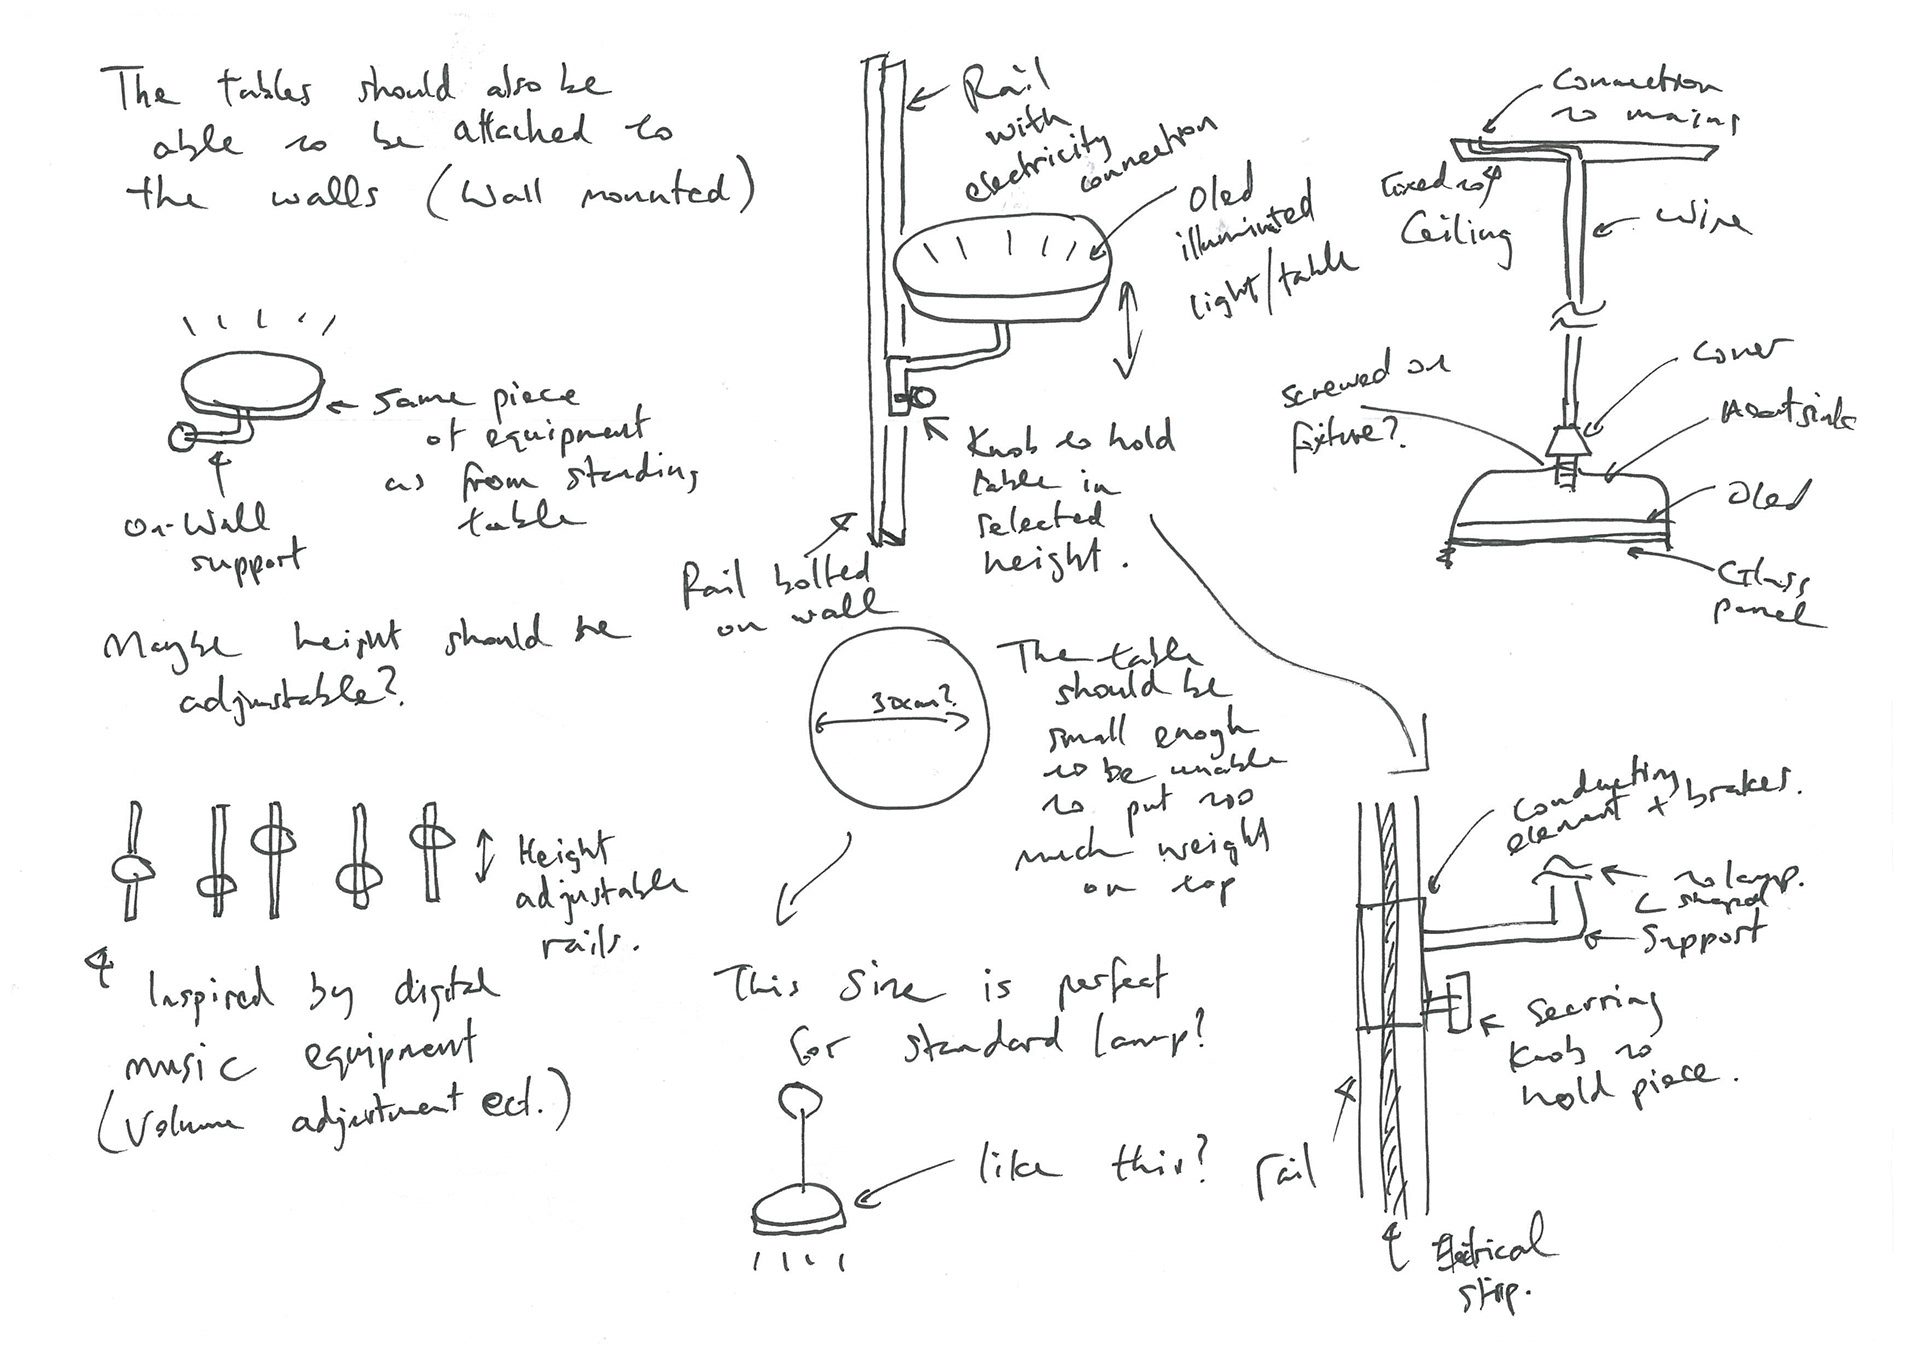 The tables should also be
able to be attached to
the walls (Wall mounted)
same piece
of equipment
as from standing
table
On-Wall
support
Maybe height should be
adjustable?
Height
adjustable
rails.
Inspired by digital
music equipment
(Volume adjustment ect.)
Rail
with
electricity
connection
Oled
illuminated
light/table
Knob to hold
table in
selected
height.
Rail bolted
on wall
30cm?
The table
should be
small enogh
to be unable
to put too
much weight
on top
This size is perfect
for standard lamp?
like this?
Connection
to mains
Fixed to
Ceiling
Wire
Screwed on
fixture?
Cover
Heatsink
Oled
Glass
panel
Conducting
element + brakes.
to lamp.
L shaped
Support
Securring
Knob to
hold piece.
rail
Eletrical
strip.